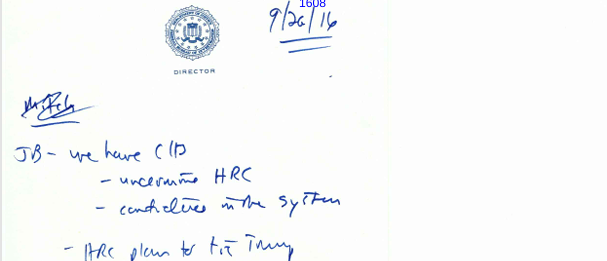 1608
9/26/16
DIRECTOR
JB - we have CID
- undermine HRC
- candidates in the system
- HRC plan to tie Trump